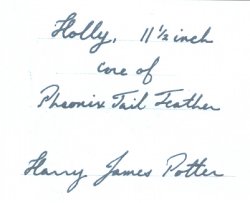 Holly, 11 1/2 inch
core of
Pheonix Tail Feather
Harry James Potter